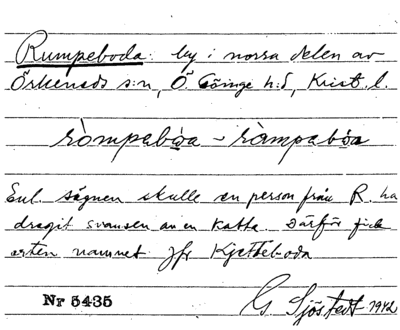 Rumpeboda: by i norra delen av
Örkeneds s:n, Ö. Göinge h:d, Krist. l.
ròmpabơa - ràmpabơa
Enl. sägnen skulle en person från R. ha
dragit svansen av en katta. Därför fick
orten namnet jfr Kjetteboda
Nr 5435 G Sjöstedt 1942